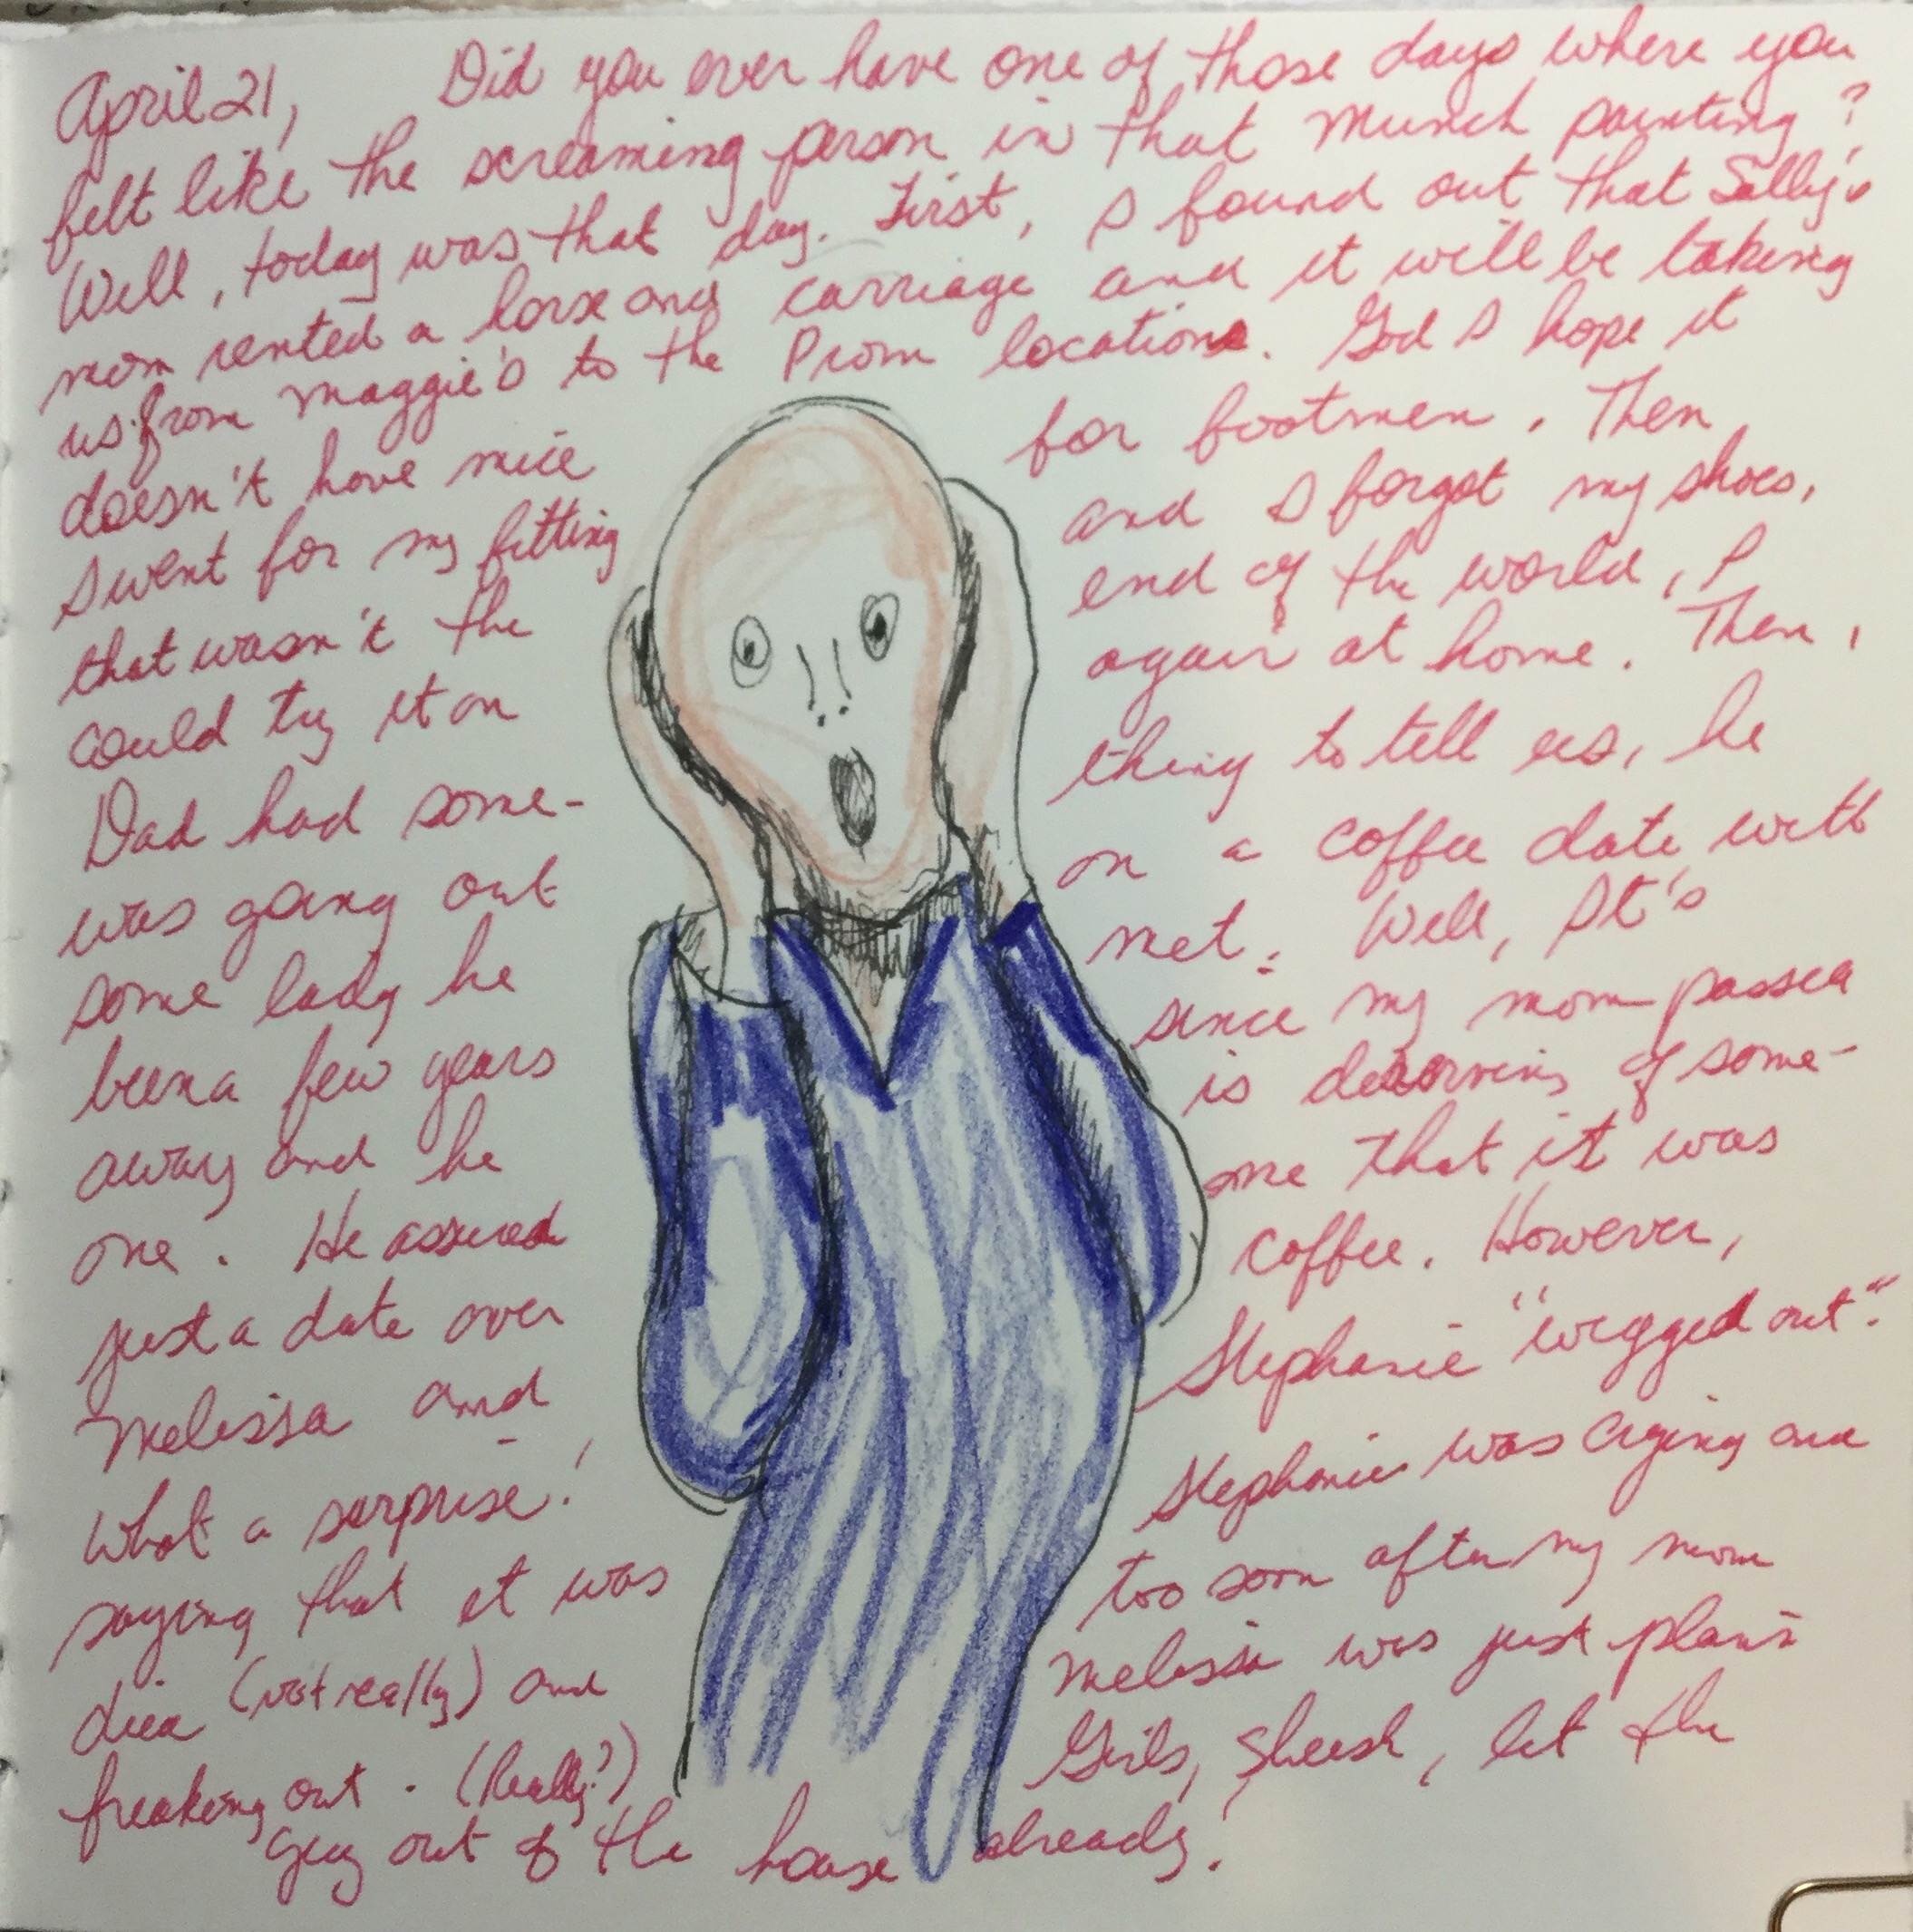 April 21, Did you ever have one of those days where you
felt like the screaming person in that Munch painting?
Well, today was that day. First, I found out that Sally's
mom rented a horse and carriage and it will be taking
us from Maggie's to the Prom location. God I hope it
doesn't have mice for footmen. Then
I went for my fitting and I forgot my shoes,
that wasn't the end of the world, I
could try it on again at home. Then,
Dad had some- thing to tell us, he
was going out on a coffee date with
some lady he met. Well, It's
been a few years since my mom passed
away and he is deserving of some-
one. He assured me that it was
just a date over coffee. However,
Melissa and Stephanie "wigged out".
What a surprise! Stephanie was crying and
saying that it was too soon after my mom
died (not really) and Melissa was just plain
freaking out. (Really?) Girls, sheesh, let the
guy out of the house already!